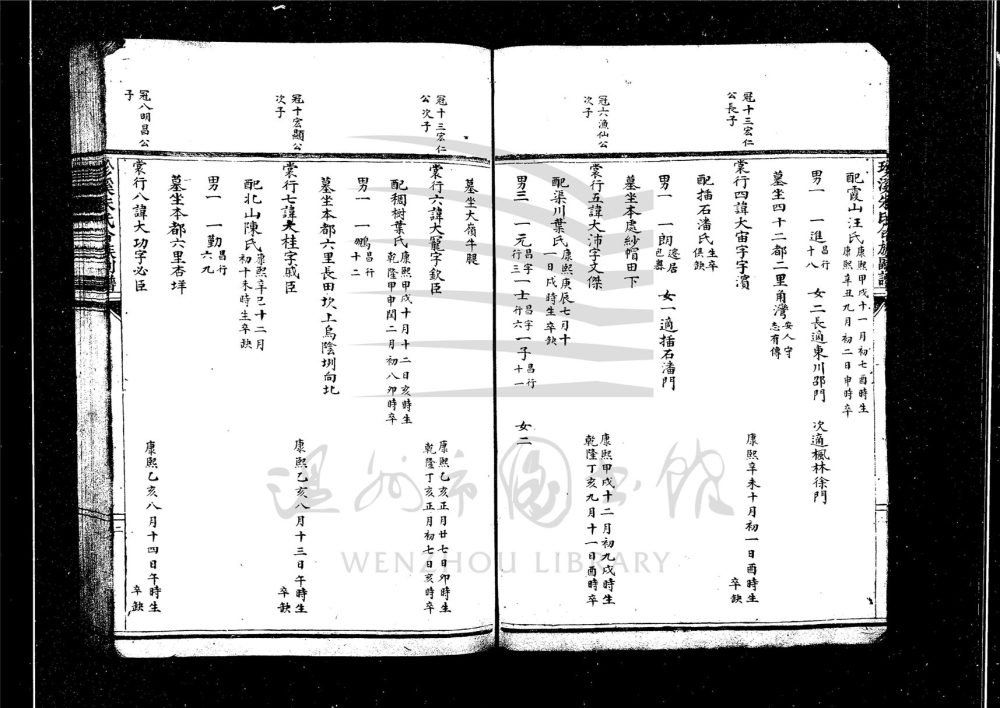 配霞山汪氏 康熙甲戌十一月初七酉時生 康熙辛丑九月初二日申時卒
男一 一進 昌行十八 女二 長適東川邵門 次適楓林徐門
墓坐四十二都二里角灣 安人守志有傳
冠十三宏仁公長子
棠行四諱大宙字字濱 康熙辛未十月初一日酉時生 卒缺
配插石潘氏 生卒俱缺
男一 一朗 遷居 女一適插石潘門
墓坐本處紗帽田下
冠六漁仙公次子
棠行五諱大沛字文傑 康熙甲戌十二月初九戌時生 乾隆丁亥九月十一日酉時卒
配渠川葉氏 康熙庚辰七月十一日戌時生 卒缺
男三 一元 昌字行三 一士 昌字行六 一子 昌行十一 女二
墓坐大嶺牛腿
冠十三宏仁公次子
棠行六諱大寵字欽臣 康熙乙亥正月廿七日卯時生 乾隆丁亥正月初七日亥時卒
配稠樹葉氏 康熙甲戌十月十二日亥時生 乾隆甲申閏二月初八卯時卒
男一 一鵬 昌行十二
墓坐本都六里長田坎上烏陰圳向北
冠十宏顯公次子
棠行七諱大桂字戚臣 康熙乙亥八月十三日午時生 卒缺
配北山陳氏 康熙辛巳十二月初十未時生 卒缺
男一 一勤 昌行六九
墓坐本都六里杏垟
冠八明昌公子
棠行八諱大功字必臣 康熙乙亥八月十四日午時生 卒缺
溫州市圖書館
WENZHOU LIBRARY